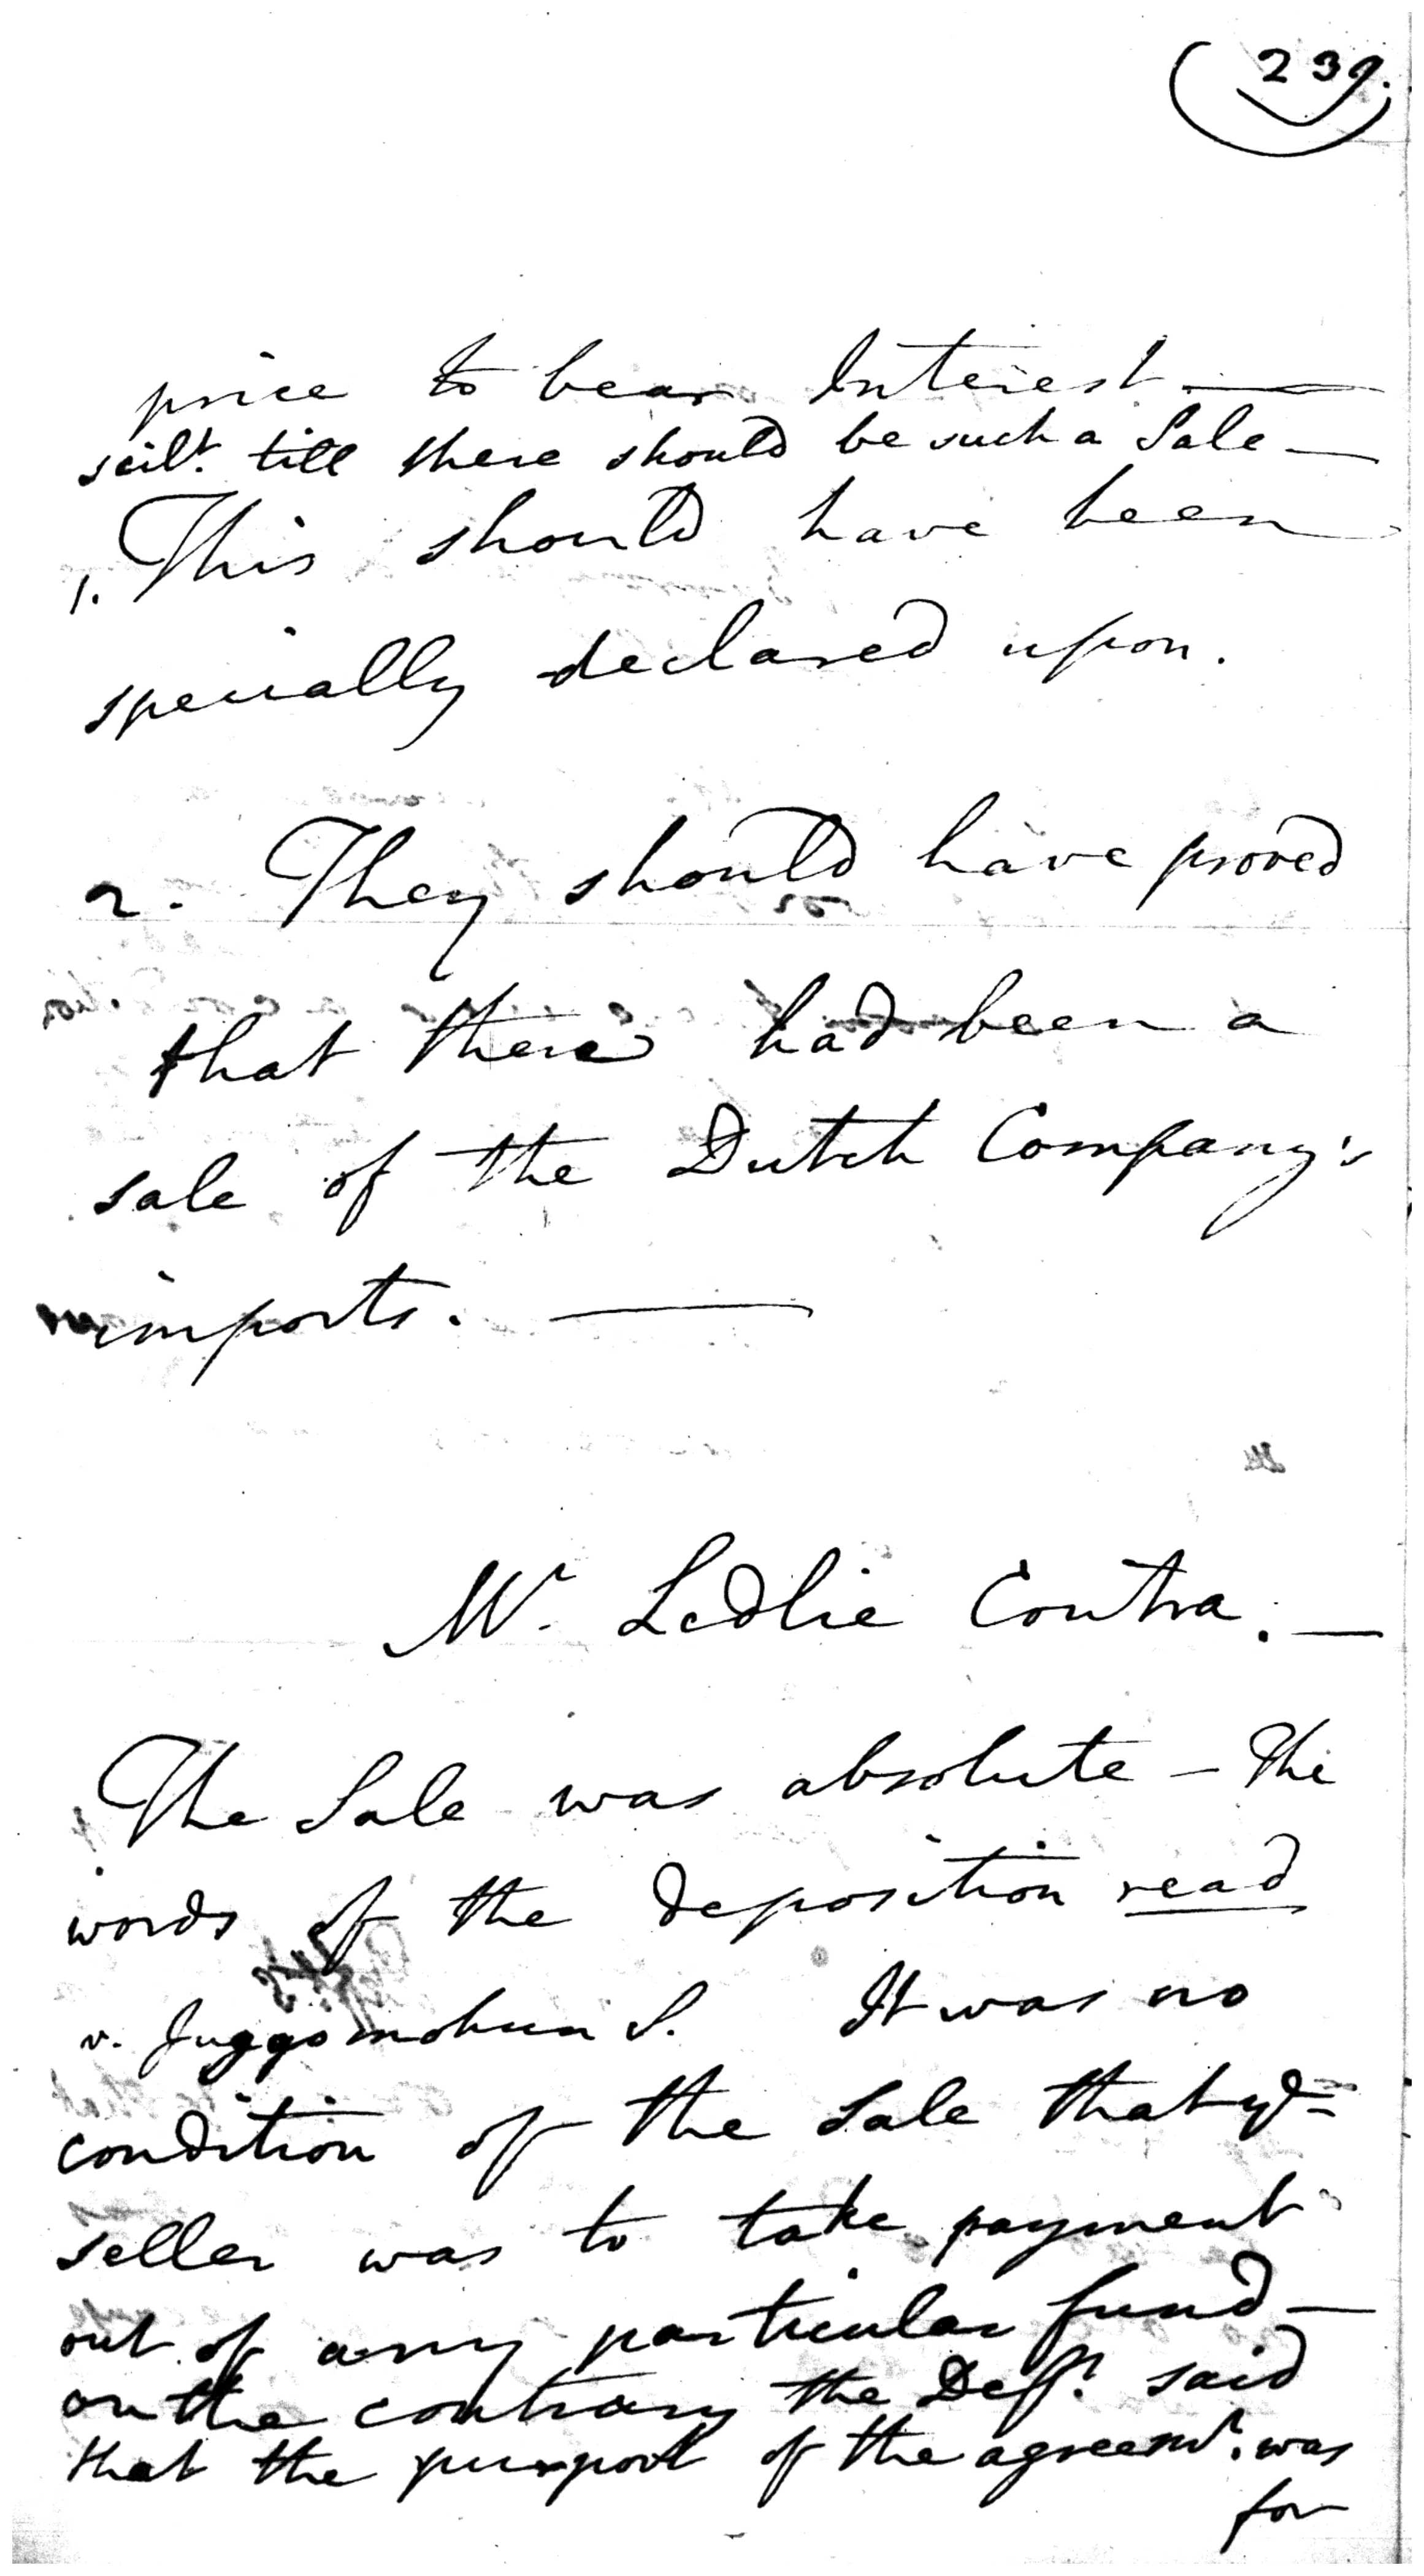 239.
price to bear Interest —
scilt. till there should be such a Sale —
1. This should have been
specially declared upon.
2. They should have proved
that there had been a
sale of the Dutch Company's
imports. —
Mr. Ledlie Contra. —
The Sale was absolute — The
words of the deposition read
v. Juggomohun S. It was no
condition of the sale that ye
seller was to take payment
out of any particular fund —
on the contrary the Deft. said
that the purport of the agreemt. was
for